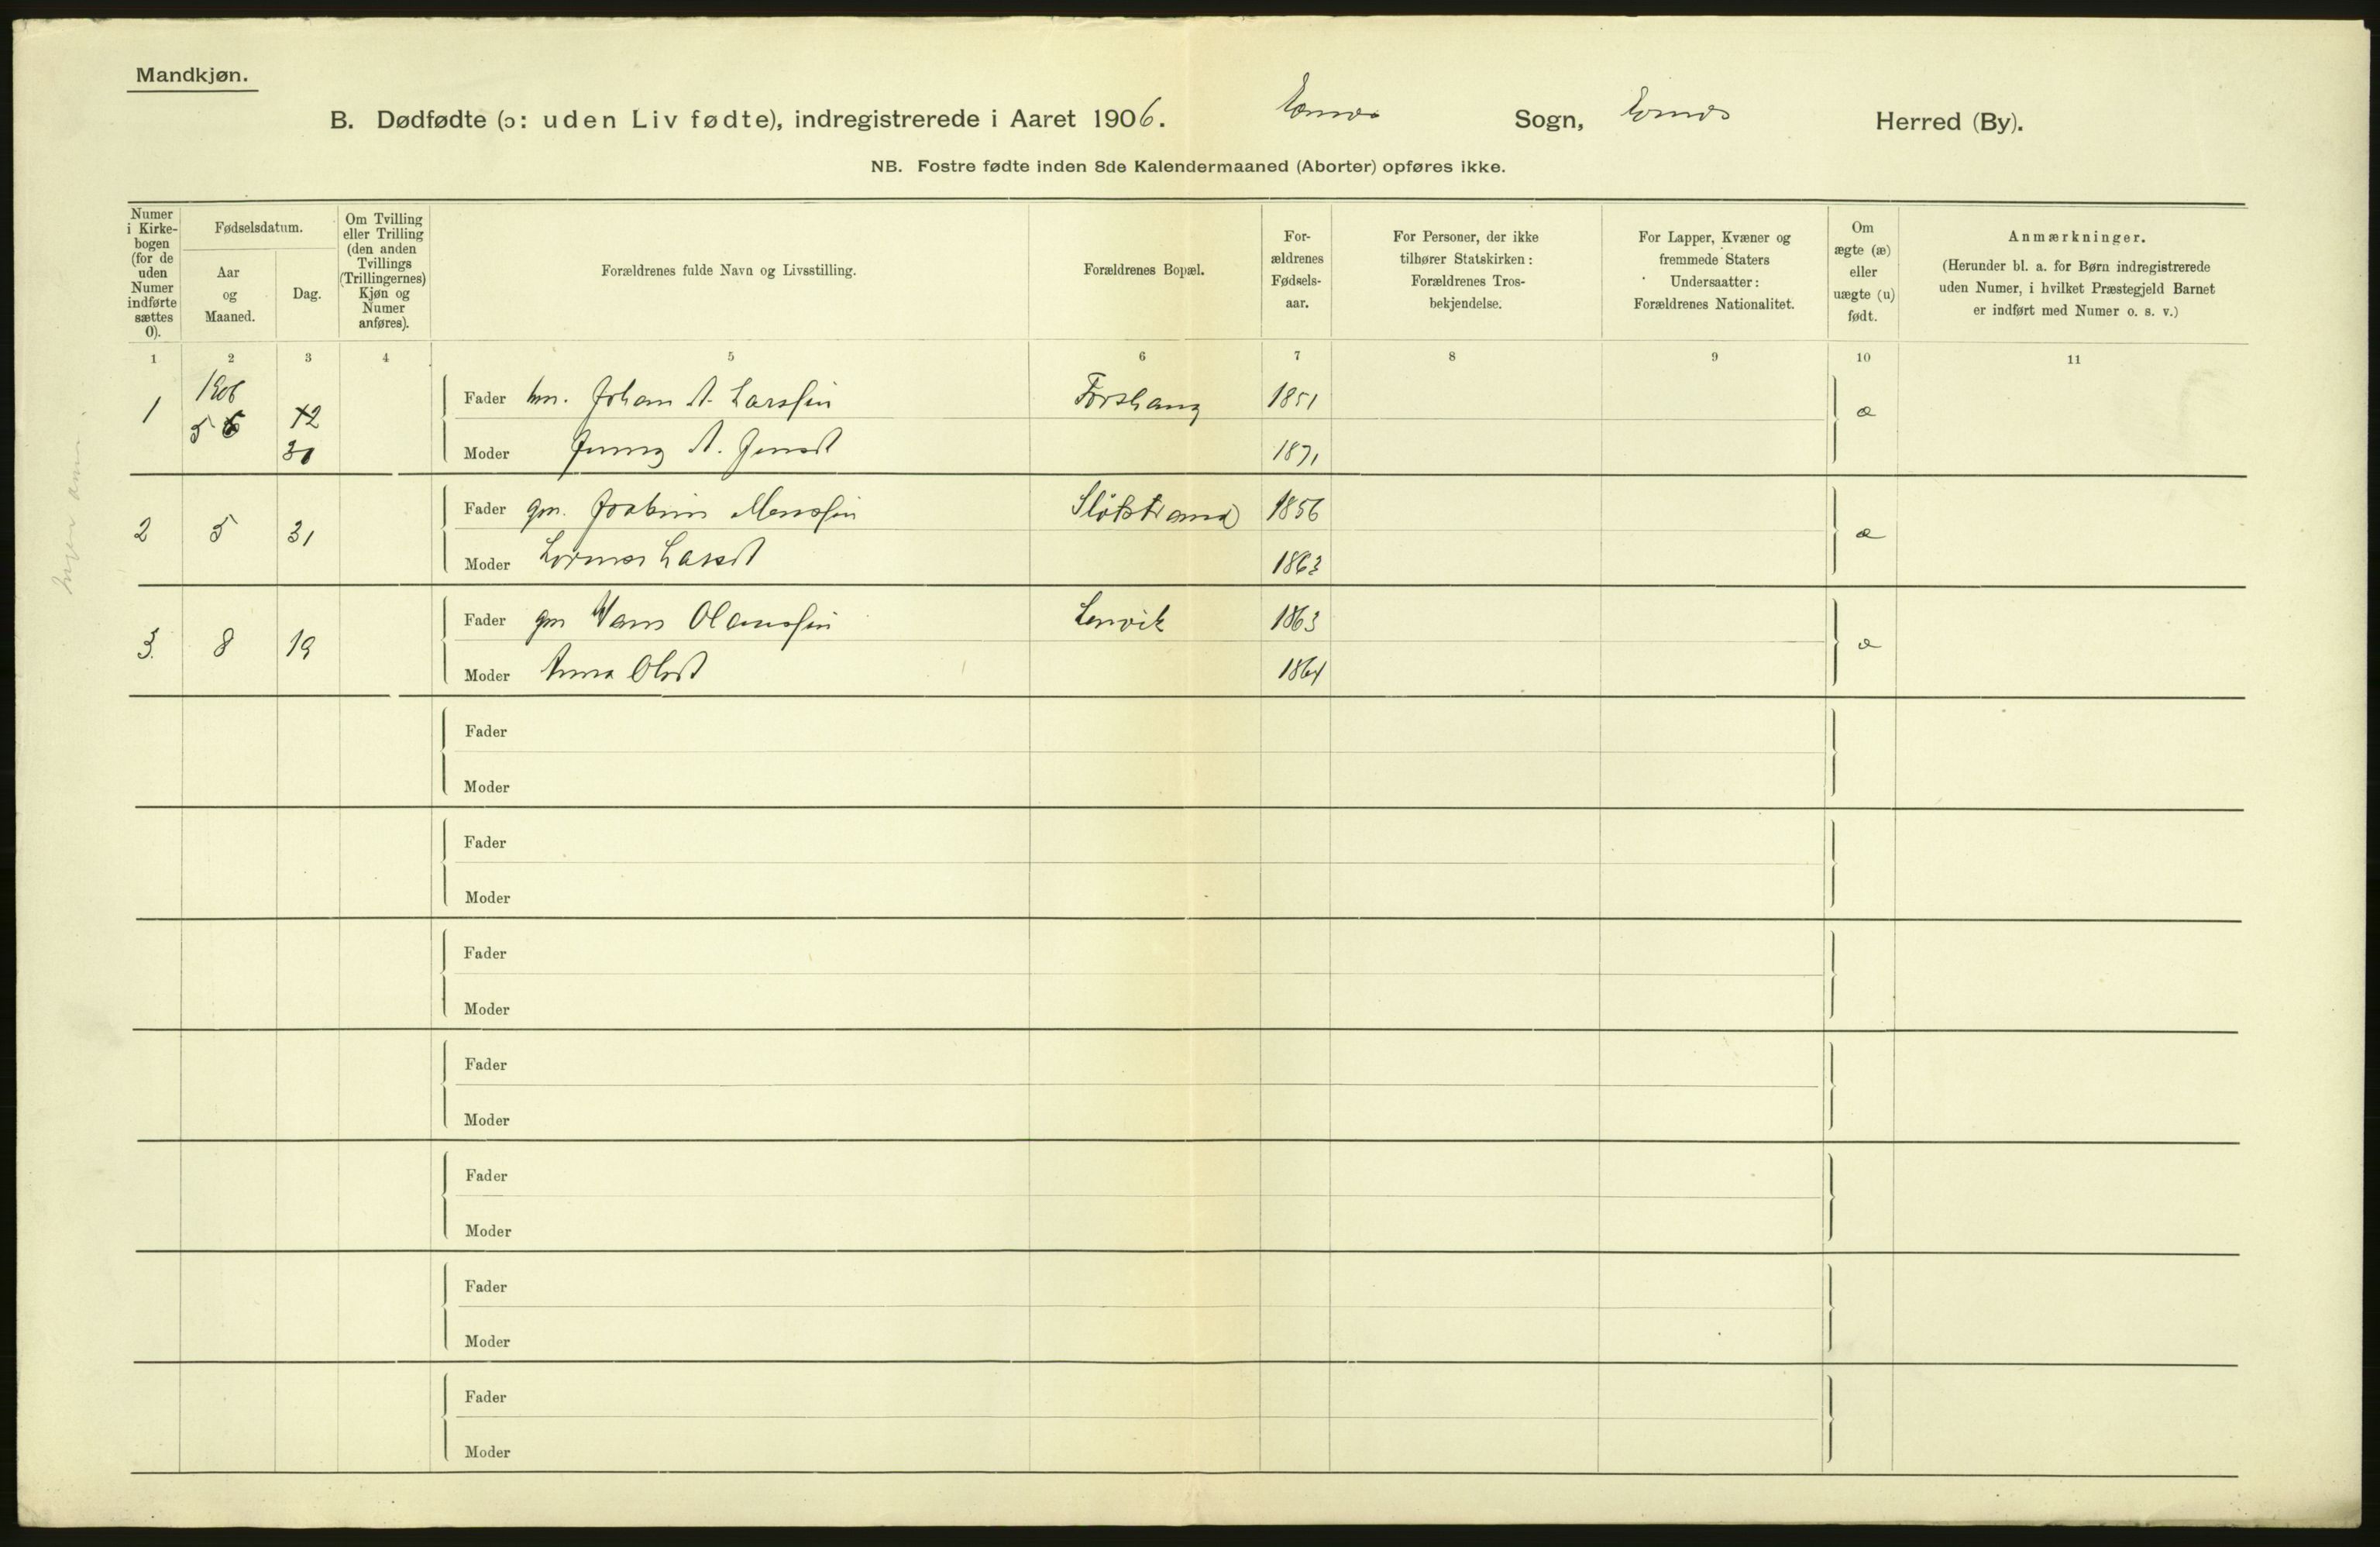 Mandkjøn.
B. Dødfødte (ɔ: uden Liv fødte), indregistrerede i Aaret 1906. Sogn, Herred (By).
NB. Fostre fødte inden 8de Kalendermaaned (Aborter) opføres ikke.
Numer i Kirke-bogen (for de uden Numer indførte sættes 0).
Fødselsdatum.
Aar og Maaned.
Dag.
Om Tvilling eller Trilling (den anden Tvillings (Trillingernes) Kjøn og Numer anføres).
Forældrenes fulde Navn og Livsstilling.
Forældrenes Bopæl.
For-ældrenes Fødsels-aar.
For Personer, der ikke tilhører Statskirken: Forældrenes Tros-bekjendelse.
For Lapper, Kvæner og fremmede Staters Undersaatter: Forældrenes Nationalitet.
Om ægte (æ) eller uægte (u) født.
Anmærkninger.
(Herunder bl. a. for Børn indregistrerede uden Numer, i hvilket Præstegjeld Barnet er indført med Numer o. s. v.)
1 2 3 4 5 6 7 8 9 10 11
1906
1 5 6 12 Fader Johan A. Larssen 1851 æ
30 Moder A. 1871
2 5 31 Fader gm. 1856 æ
Moder 1863
3. 8 19 Fader gm Hans Lenvik 1863 æ
Moder Anna Olsd 1864
Fader
Moder
Fader
Moder
Fader
Moder
Fader
Moder
Fader
Moder
Fader
Moder
Fader
Moder